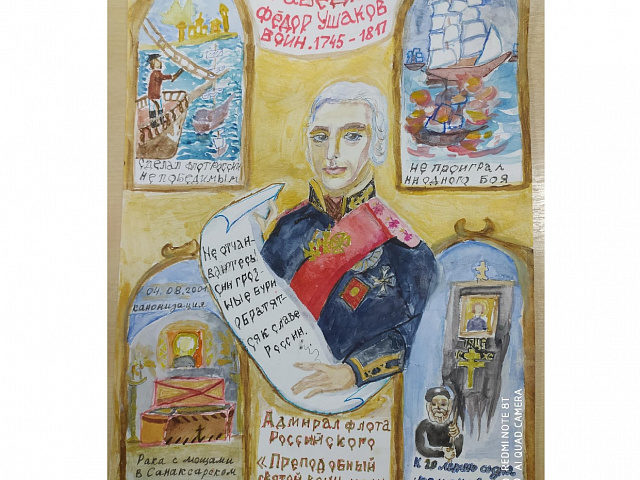 Фёдор Ушаков
Воин. 1745 - 1817
Сделал флот России
непобедимым
Не проиграл
ни одного боя
Не отчаи-
вайтесь
сии гроз-
ные бури
обратят-
ся к славе
России.
04.08.2001
канонизация
Рака с мощами
в Санаксарском
Адмирал флота
Российского
«Преподобный
К 20 летию
REDMI NOTE 8T
AI QUAD CAMERA